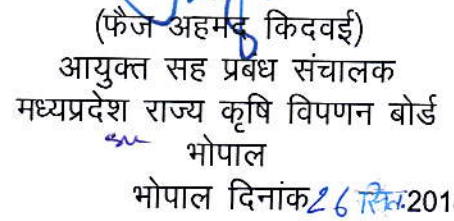 (फैज अहमद किदवई)
आयुक्त सह प्रबंध संचालक
मध्यप्रदेश राज्य कृषि विपणन बोर्ड
भोपाल
भोपाल दिनांक 26 सित. 201